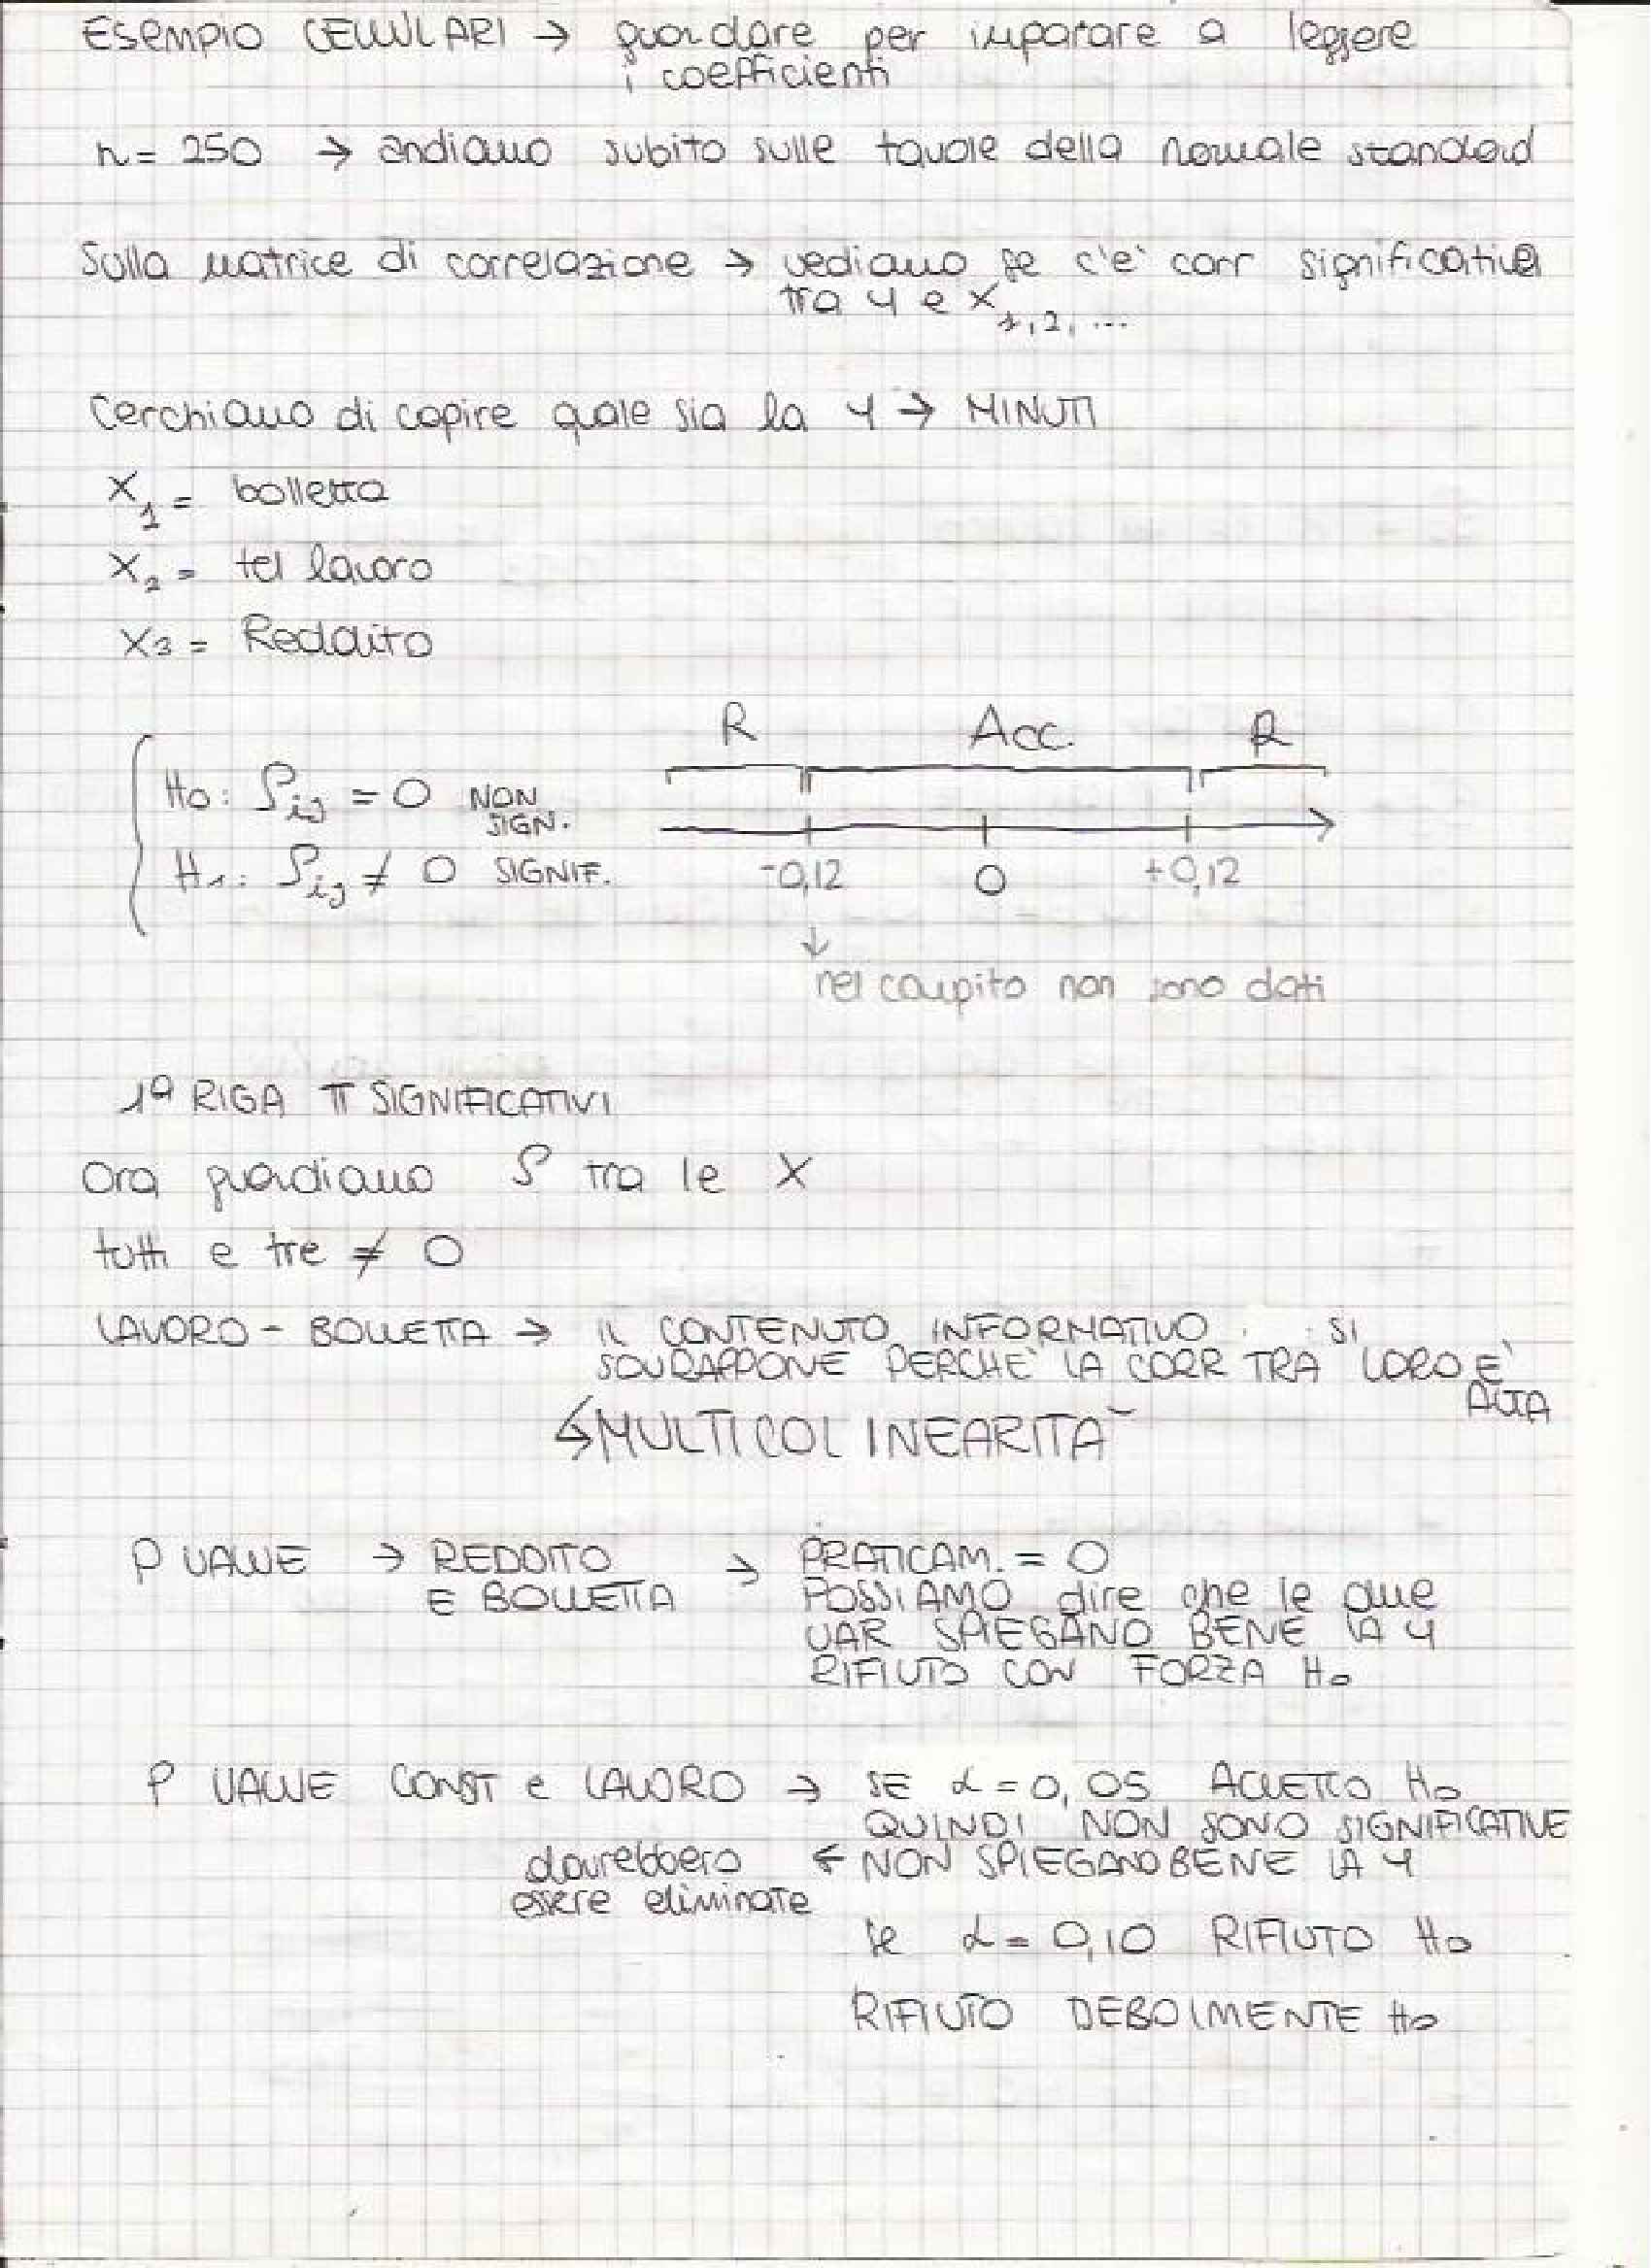 Esempio CELLULARI → guardare per imparare a leggere
i coefficienti
n = 250 → andiamo subito sulle tavole della normale standard
Sulla matrice di correlazione → vediamo se c'e' corr significativa
tra Y e X1,2,...
Cerchiamo di capire quale sia la Y → MINUTI
X1 = bolletta
X2 = tel lavoro
X3 = Reddito
R Acc. R
H0: ρij = 0 NON
SIGN.
H1: ρij ≠ 0 SIGNIF.
-0,12 0 +0,12
↓
nel compito non sono dati
1ª RIGA TT SIGNIFICATIVI
Ora guardiamo ρ tra le X
tutti e tre ≠ 0
LAVORO - BOLLETTA → IL CONTENUTO INFORMATIVO SI
SOVRAPPONE PERCHE' LA CORR TRA LORO E'
ALTA
↳ MULTICOLINEARITA'
P VALUE → REDDITO → PRATICAM. = 0
E BOLLETTA POSSIAMO dire che le due
VAR SPIEGANO BENE LA Y
RIFIUTO CON FORZA H0
P VALUE CONST e LAVORO → SE α = 0,05 ACCETTO H0
QUINDI NON SONO SIGNIFICATIVE
dovrebbero ← NON SPIEGANO BENE LA Y
essere eliminate
se α = 0,10 RIFIUTO H0
RIFIUTO DEBOLMENTE H0